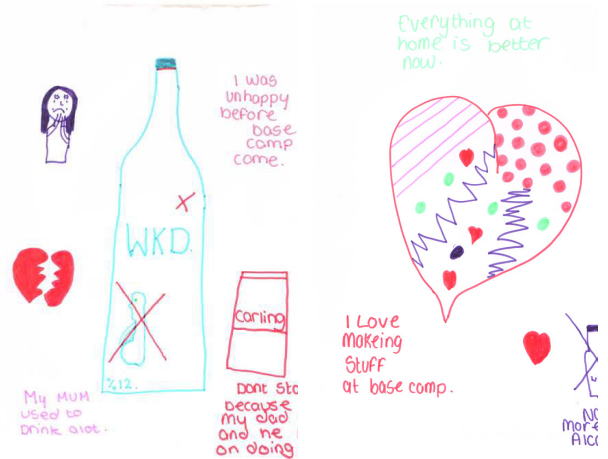 I was
unhappy
before
base
camp
come.
WKD.
%12.
Carling
My MUM
used to
Drink alot.
Dont
because
my dad
and he
on doing
Everything at
home is better
now.
I Love
Makeing
Stuff
at base camp.
more